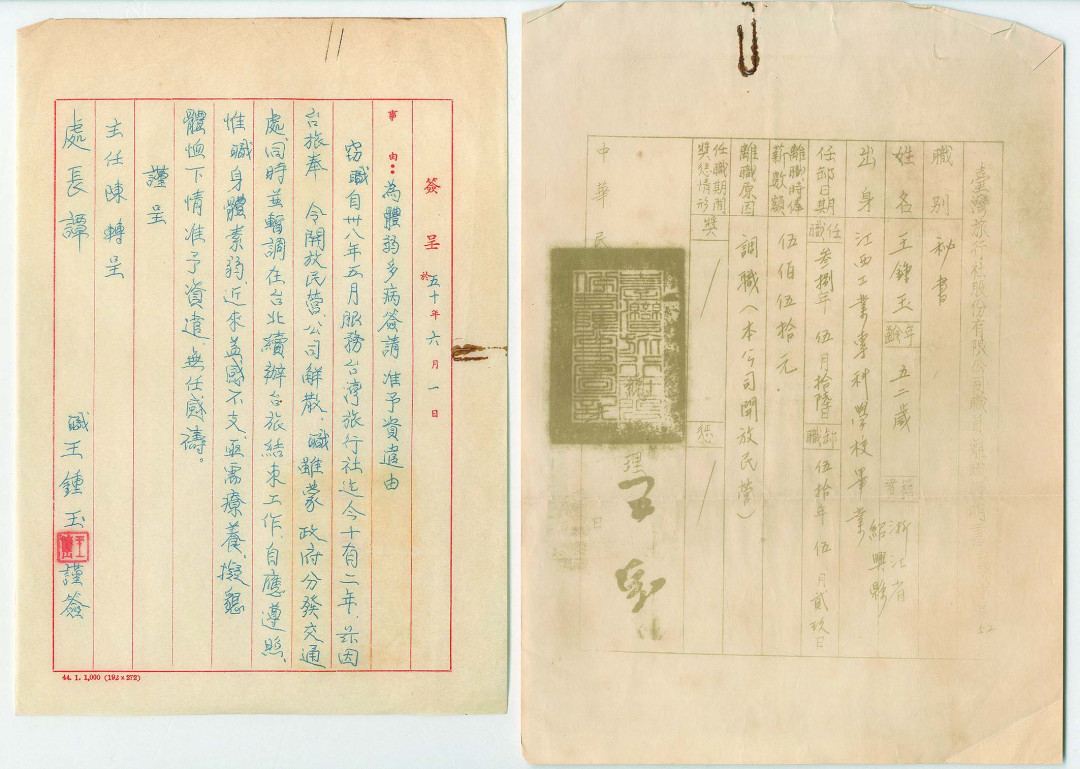 簽呈 於五十年六月一日
事由：為體弱多病簽請 准予資遣由
竊職自卅八年五月服務台灣旅行社迄今十有二年．茲因
台旅奉 令開放民營．公司解散．職雖蒙 政府分發交通
處．同時並暫調在台北續辦台旅結束工作．自應遵照．
惟職身體素弱．近來益感不支．亟需療養．擬懇
體恤下情准予資遣．無任感禱。
謹呈
主任陳轉呈
處長譚
職王鍾玉謹簽
44. 1. 1,000 (192×272)
臺灣旅行社股份有限公司職
52
職別 秘書
姓名 王鍾玉 年齡 五二歲 籍貫 浙江省紹興縣
出身 江西工業專科學校畢業
任卸日期 任職 叁捌年伍月拾陸日 卸職 伍拾年伍月貳玖日
離職時俸薪數額 伍佰伍拾元．
離職原因 調職（本公司開放民營）
任職期間獎懲情形 獎 / 懲 /
中華民
理 王
日